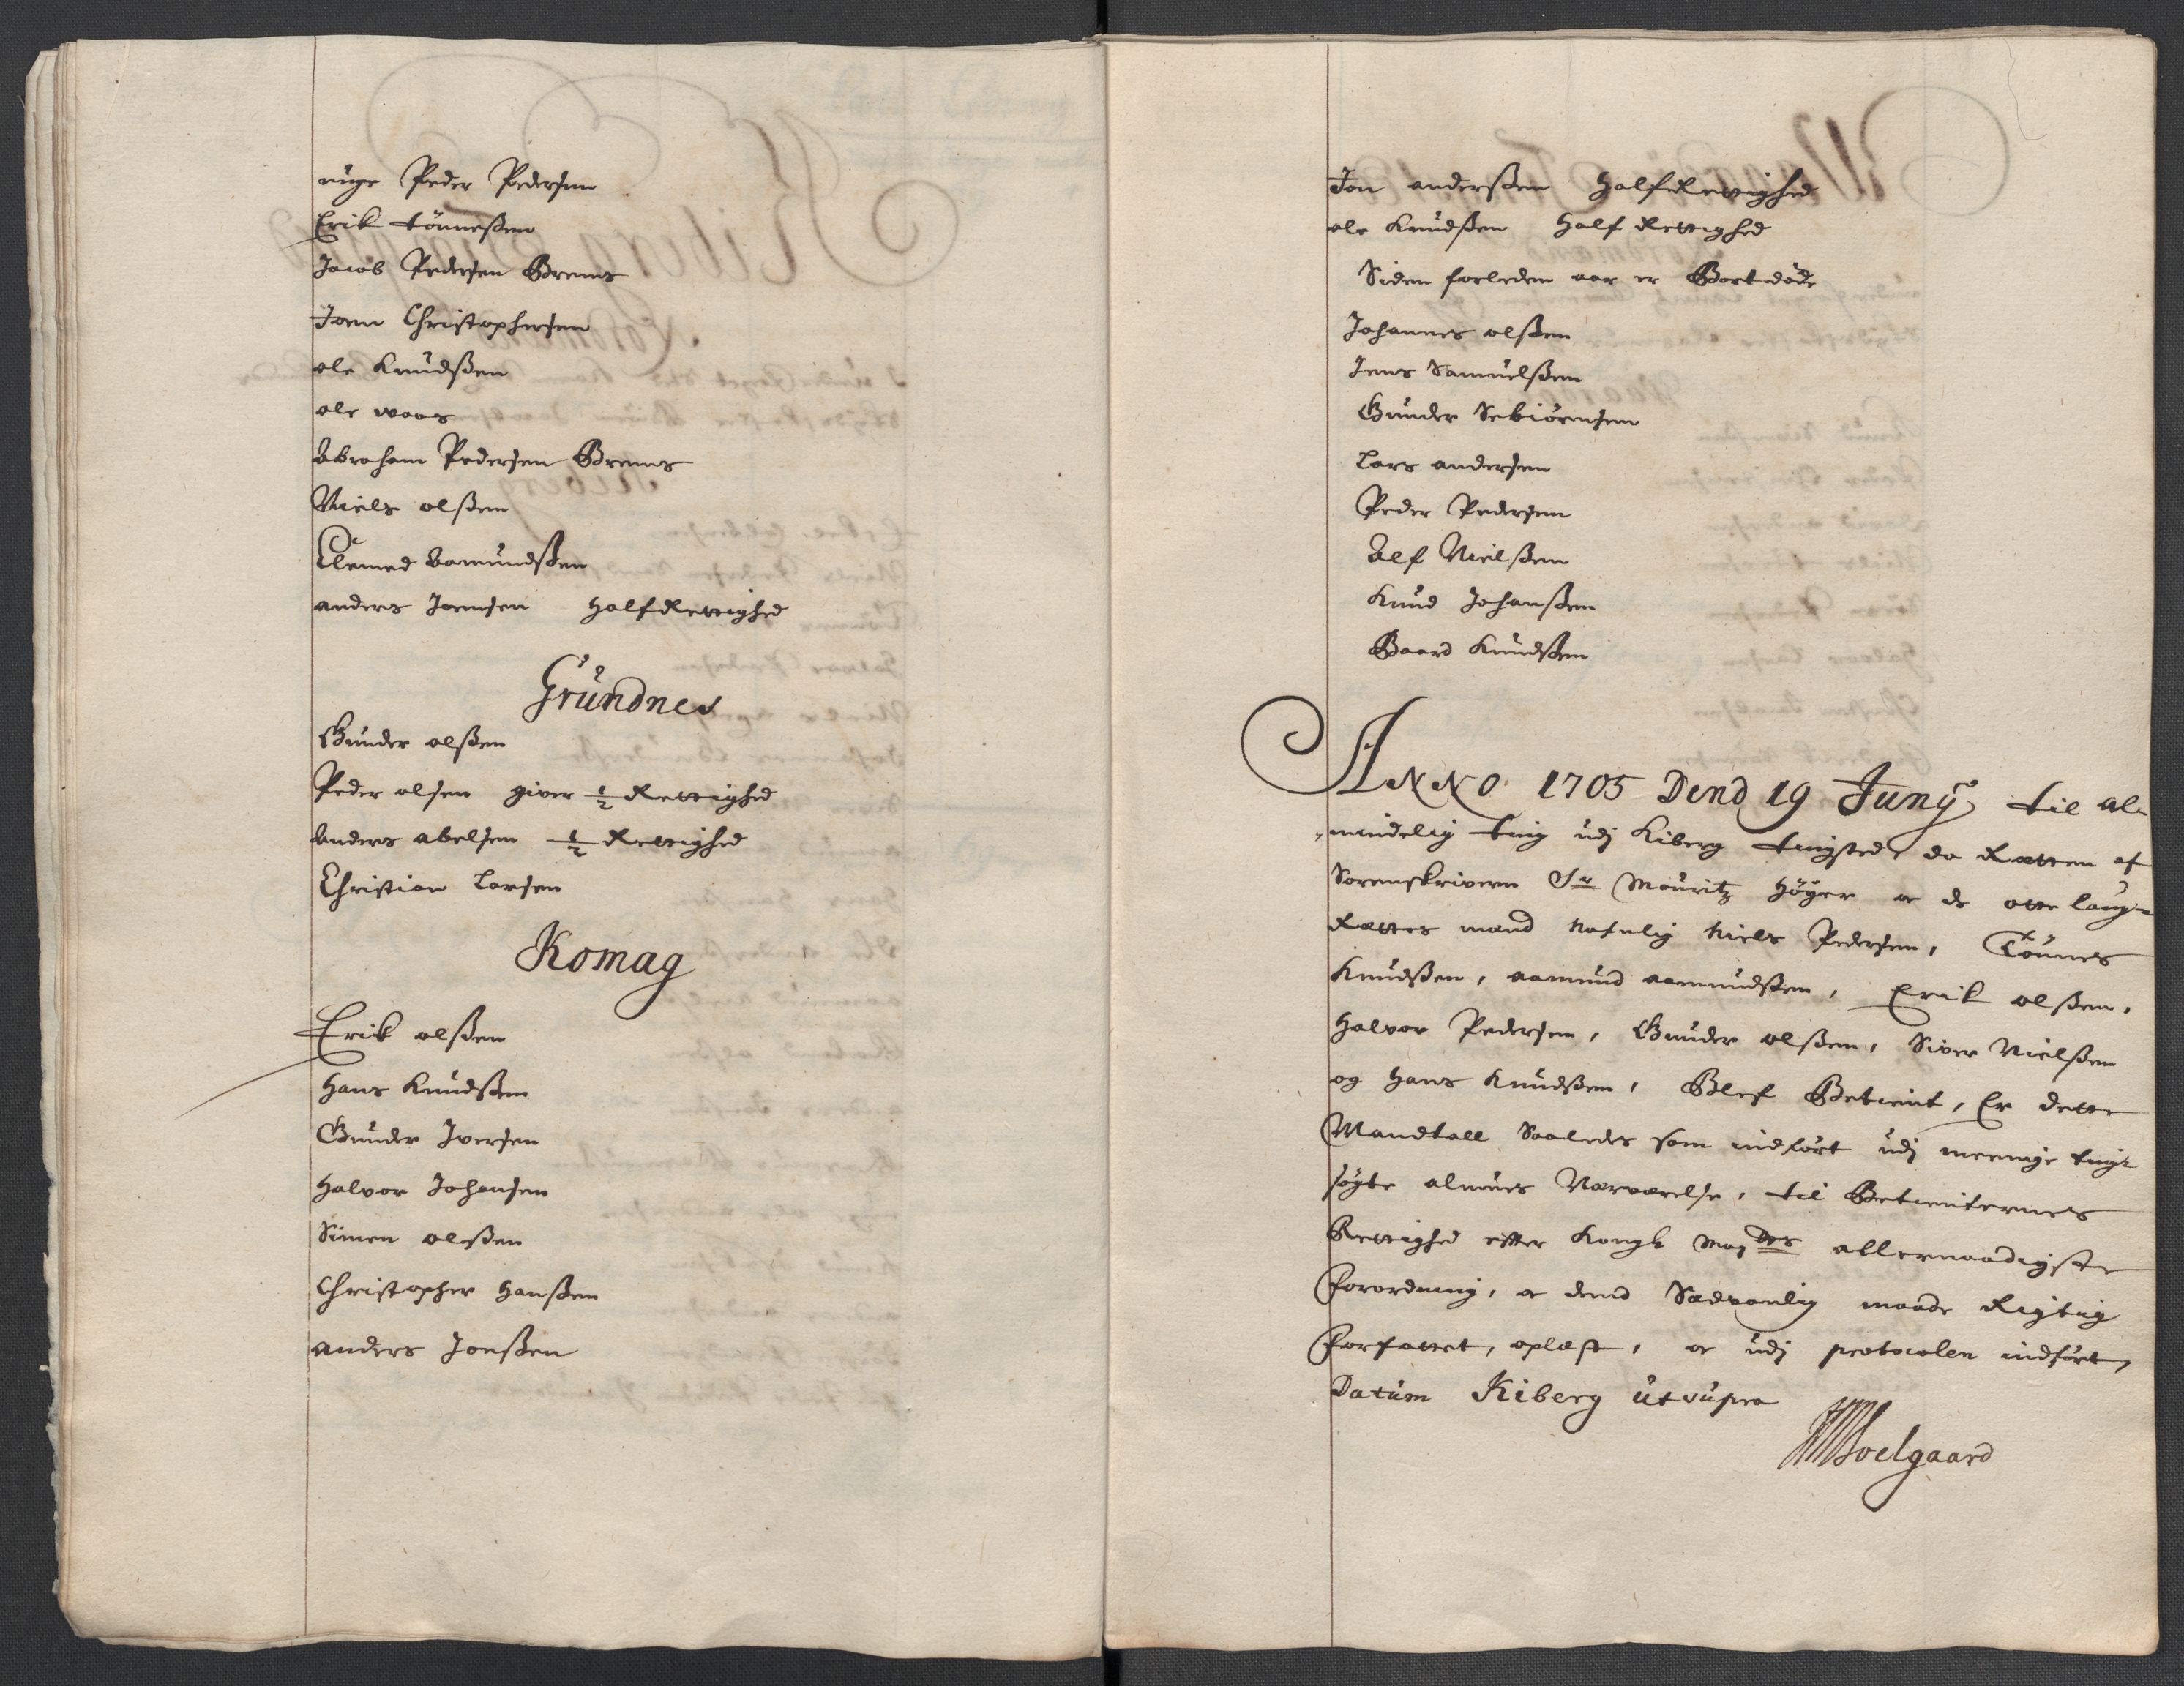 unge Peder Pedersen
Erik tønneßen
Jacob Pedersen Brems
Joen Christophersen
ole Knudßen
ole woos
Abraham Pedersen Brems
Niels olßen
Clemed Aamundßen
anders Joensen Half Rettighed
Grundnes
Gunder olßen
Peder olsen giver ½ Rettighed
Anders abelsen ½ Rettighed
Christian Larsen
Komag
Erik olßen
Hans Knudßen
Gunder Iversen
Halvor Johansen
Simen olßen
Christopher Hanßen
anders Jonßen
Jon anderßen Half Rettighed
ole Knudßen Half Rettighed
Siden forleden aar er Bortdøde
Johannes olßen
Jens Samuelßen
Gunder Sebiørnsen
Lars andersen
Peder Pedersen
Alf Nielßen
Knud Johanßen
Baard Knudßen
ANNO 1705 Dend 19 Junÿ til al-
mindelig ting udj Kiberg tingsted, da Retten af
Sorenskriveren Sr Mouritz Høÿer oc de otte laug-
Rettes mænd nafnlig Niels Pedersen, Tønnes
Knudßen, aamund aamundßen, Erik olßen,
Halvor Pedersen, Gunder olßen, Siver Nielßen
og Hans Knudßen, Blef Betient, Er dette
Mandtall Saaledes som indført udj meenige ting-
søgte almues Nærværelse, til Betienternes
Rettighed efter Kongl May.tts allernaadigste
Forordning, oc dend Sædvanlig maade Rigtig
Forfattet, oplæst, oc udj protocolen indført,
Datum Kiberg ut supra
Soelgaard